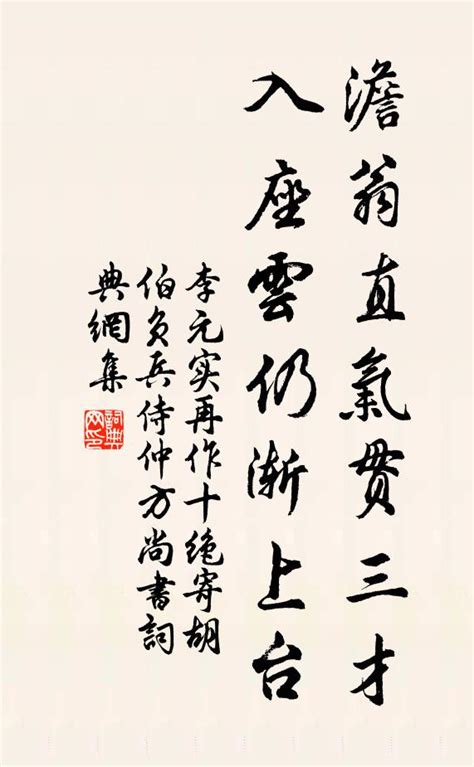 澹翁直氣貫三才
入座雲仍漸上台
李元实再作十绝寄胡
伯负兵侍仲方尚書詞
典網集
詞典
网印